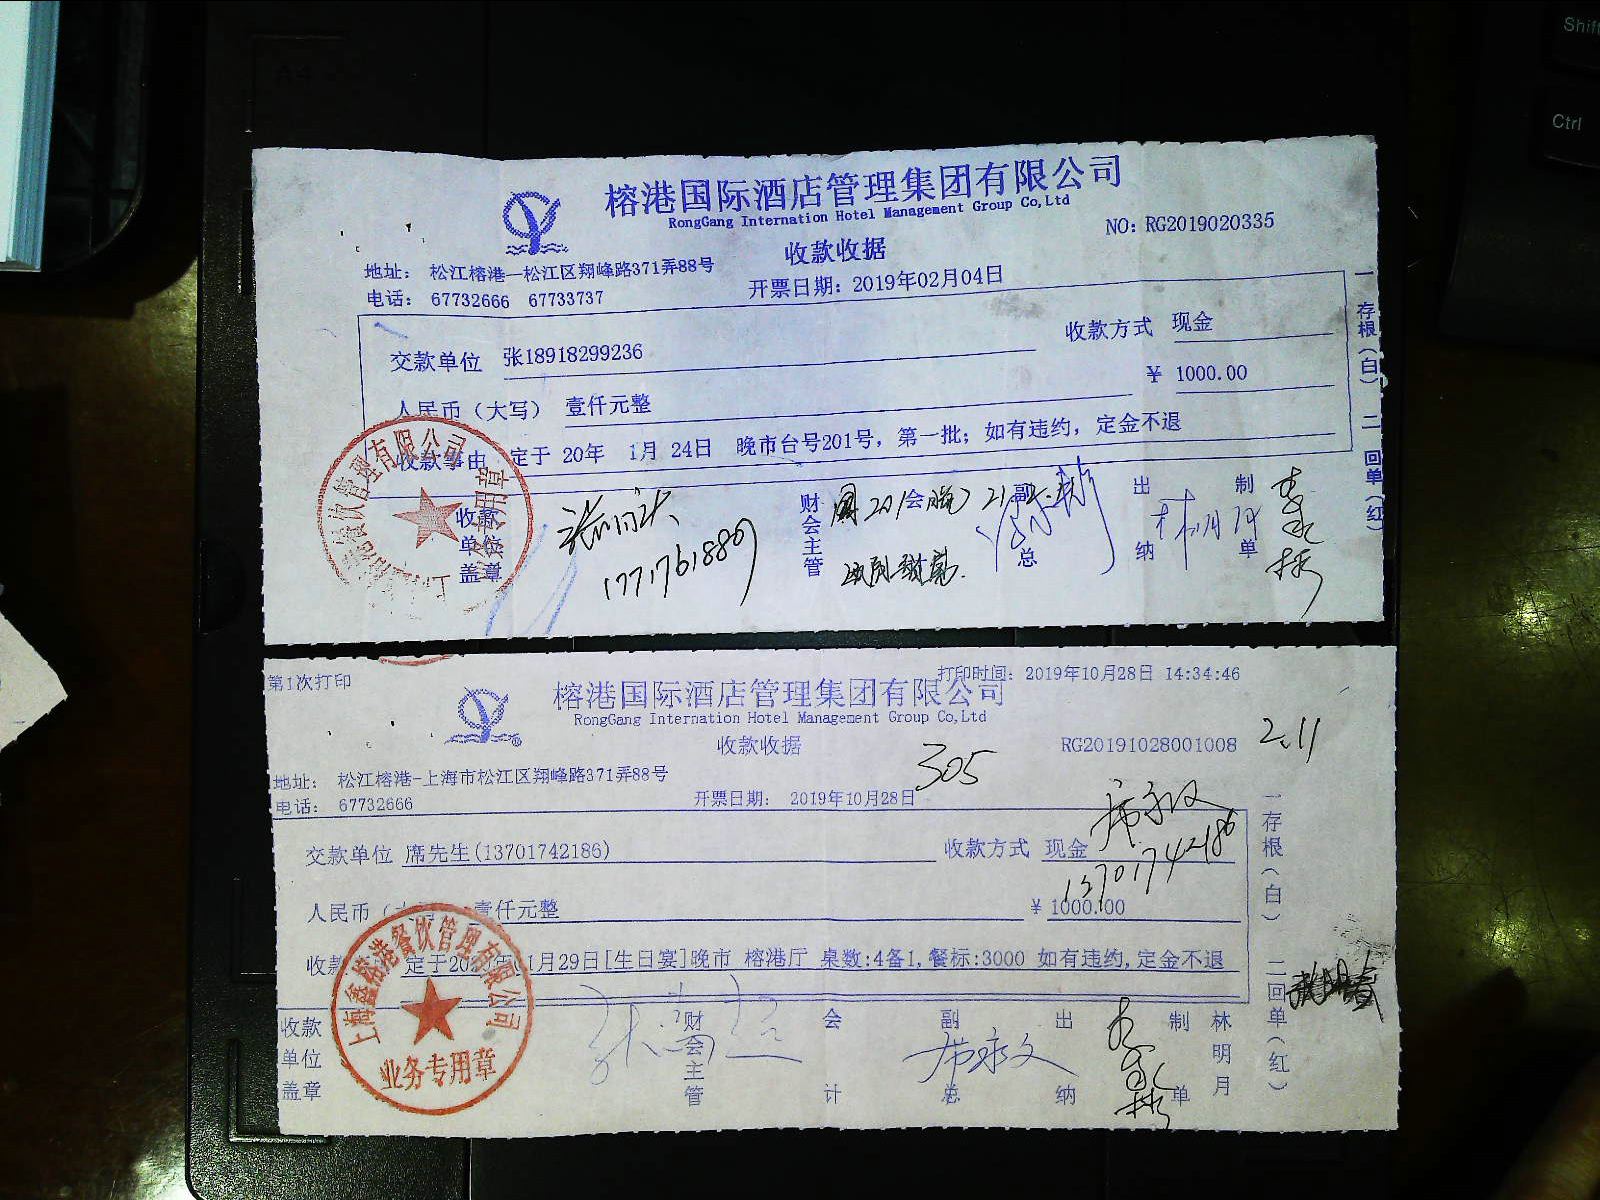 Shift
Ctrl
A4
榕港国际酒店管理集团有限公司
RongGang Internation Hotel Management Group Co,Ltd
NO: RG2019020335
收款收据
地址： 松江榕港—松江区翔峰路371弄88号
电话： 67732666 67733737
开票日期：2019年02月04日
交款单位 张18918299236
收款方式 现金
人民币（大写） 壹仟元整
¥ 1000.00
收款事由 定于 20年 1月 24日 晚市台号201号，第一批；如有违约，定金不退
一存根（白） 二回单（红）
收款单位盖章
财会主管
副总
出纳
制单
1771761880
第1次打印
打印时间：2019年10月28日 14:34:46
榕港国际酒店管理集团有限公司
RongGang Internation Hotel Management Group Co,Ltd
收款收据
305
RG20191028001008
2.11
地址： 松江榕港-上海市松江区翔峰路371弄88号
电话： 67732666
开票日期： 2019年10月28日
交款单位 席先生(13701742186)
收款方式 现金
13701742186
人民币（ 壹仟元整
¥ 1000.00
收款 定于20 1月29日[生日宴]晚市 榕港厅 桌数:4备1,餐标:3000 如有违约,定金不退
一存根（白） 二回单（红）
上海鑫榕港餐饮管理有限公司
业务专用章
收款单位盖章
财会主管
会计
副总
席永文
出纳
制单
林明月